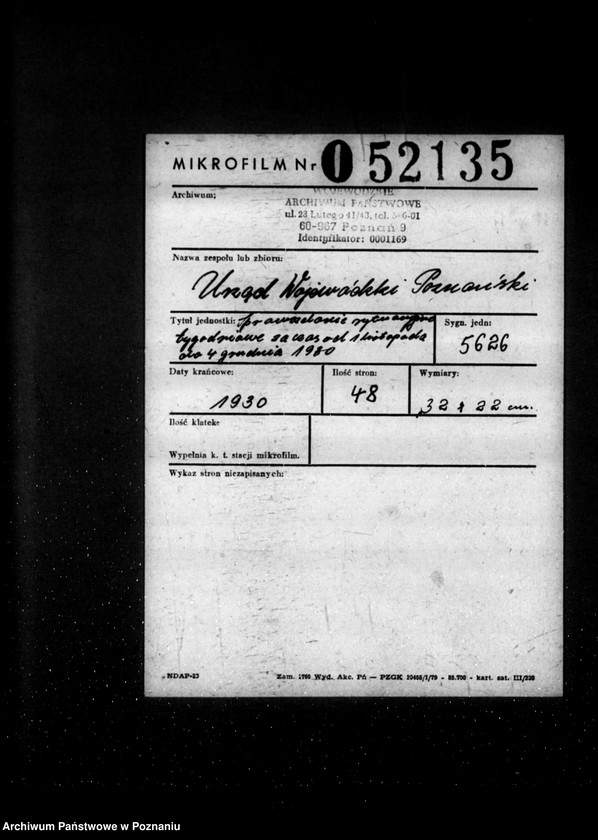 MIKROFILM Nr 0 52135
Archiwum:
WOJEWÓDZKIE
ARCHIWUM PAŃSTWOWE
ul. 23 Lutego 41/43, tel. 5-6-01
60-967 Poznań 9
Identyfikator: 0001169
Nazwa zespołu lub zbioru:
Urząd Wojewódzki Poznański
Tytuł jednostki: Sprawozdanie sytuacyjne
tygodniowe za czas od 1 listopada
do 4 grudnia 1930
Sygn. jedn:
5626
Daty krańcowe:
1930
Ilość stron:
48
Wymiary:
32 x 22 cm.
Ilość klatek:
Wypełnia k. t. stacji mikrofilm.
Wykaz stron niezapisanych:
NDAP-23
Zam. 1760 Wyd. Akc. Pń — PZGK 20468/I/79 - 88.700 - kart. sat. III/220
Archiwum Państwowe w Poznaniu